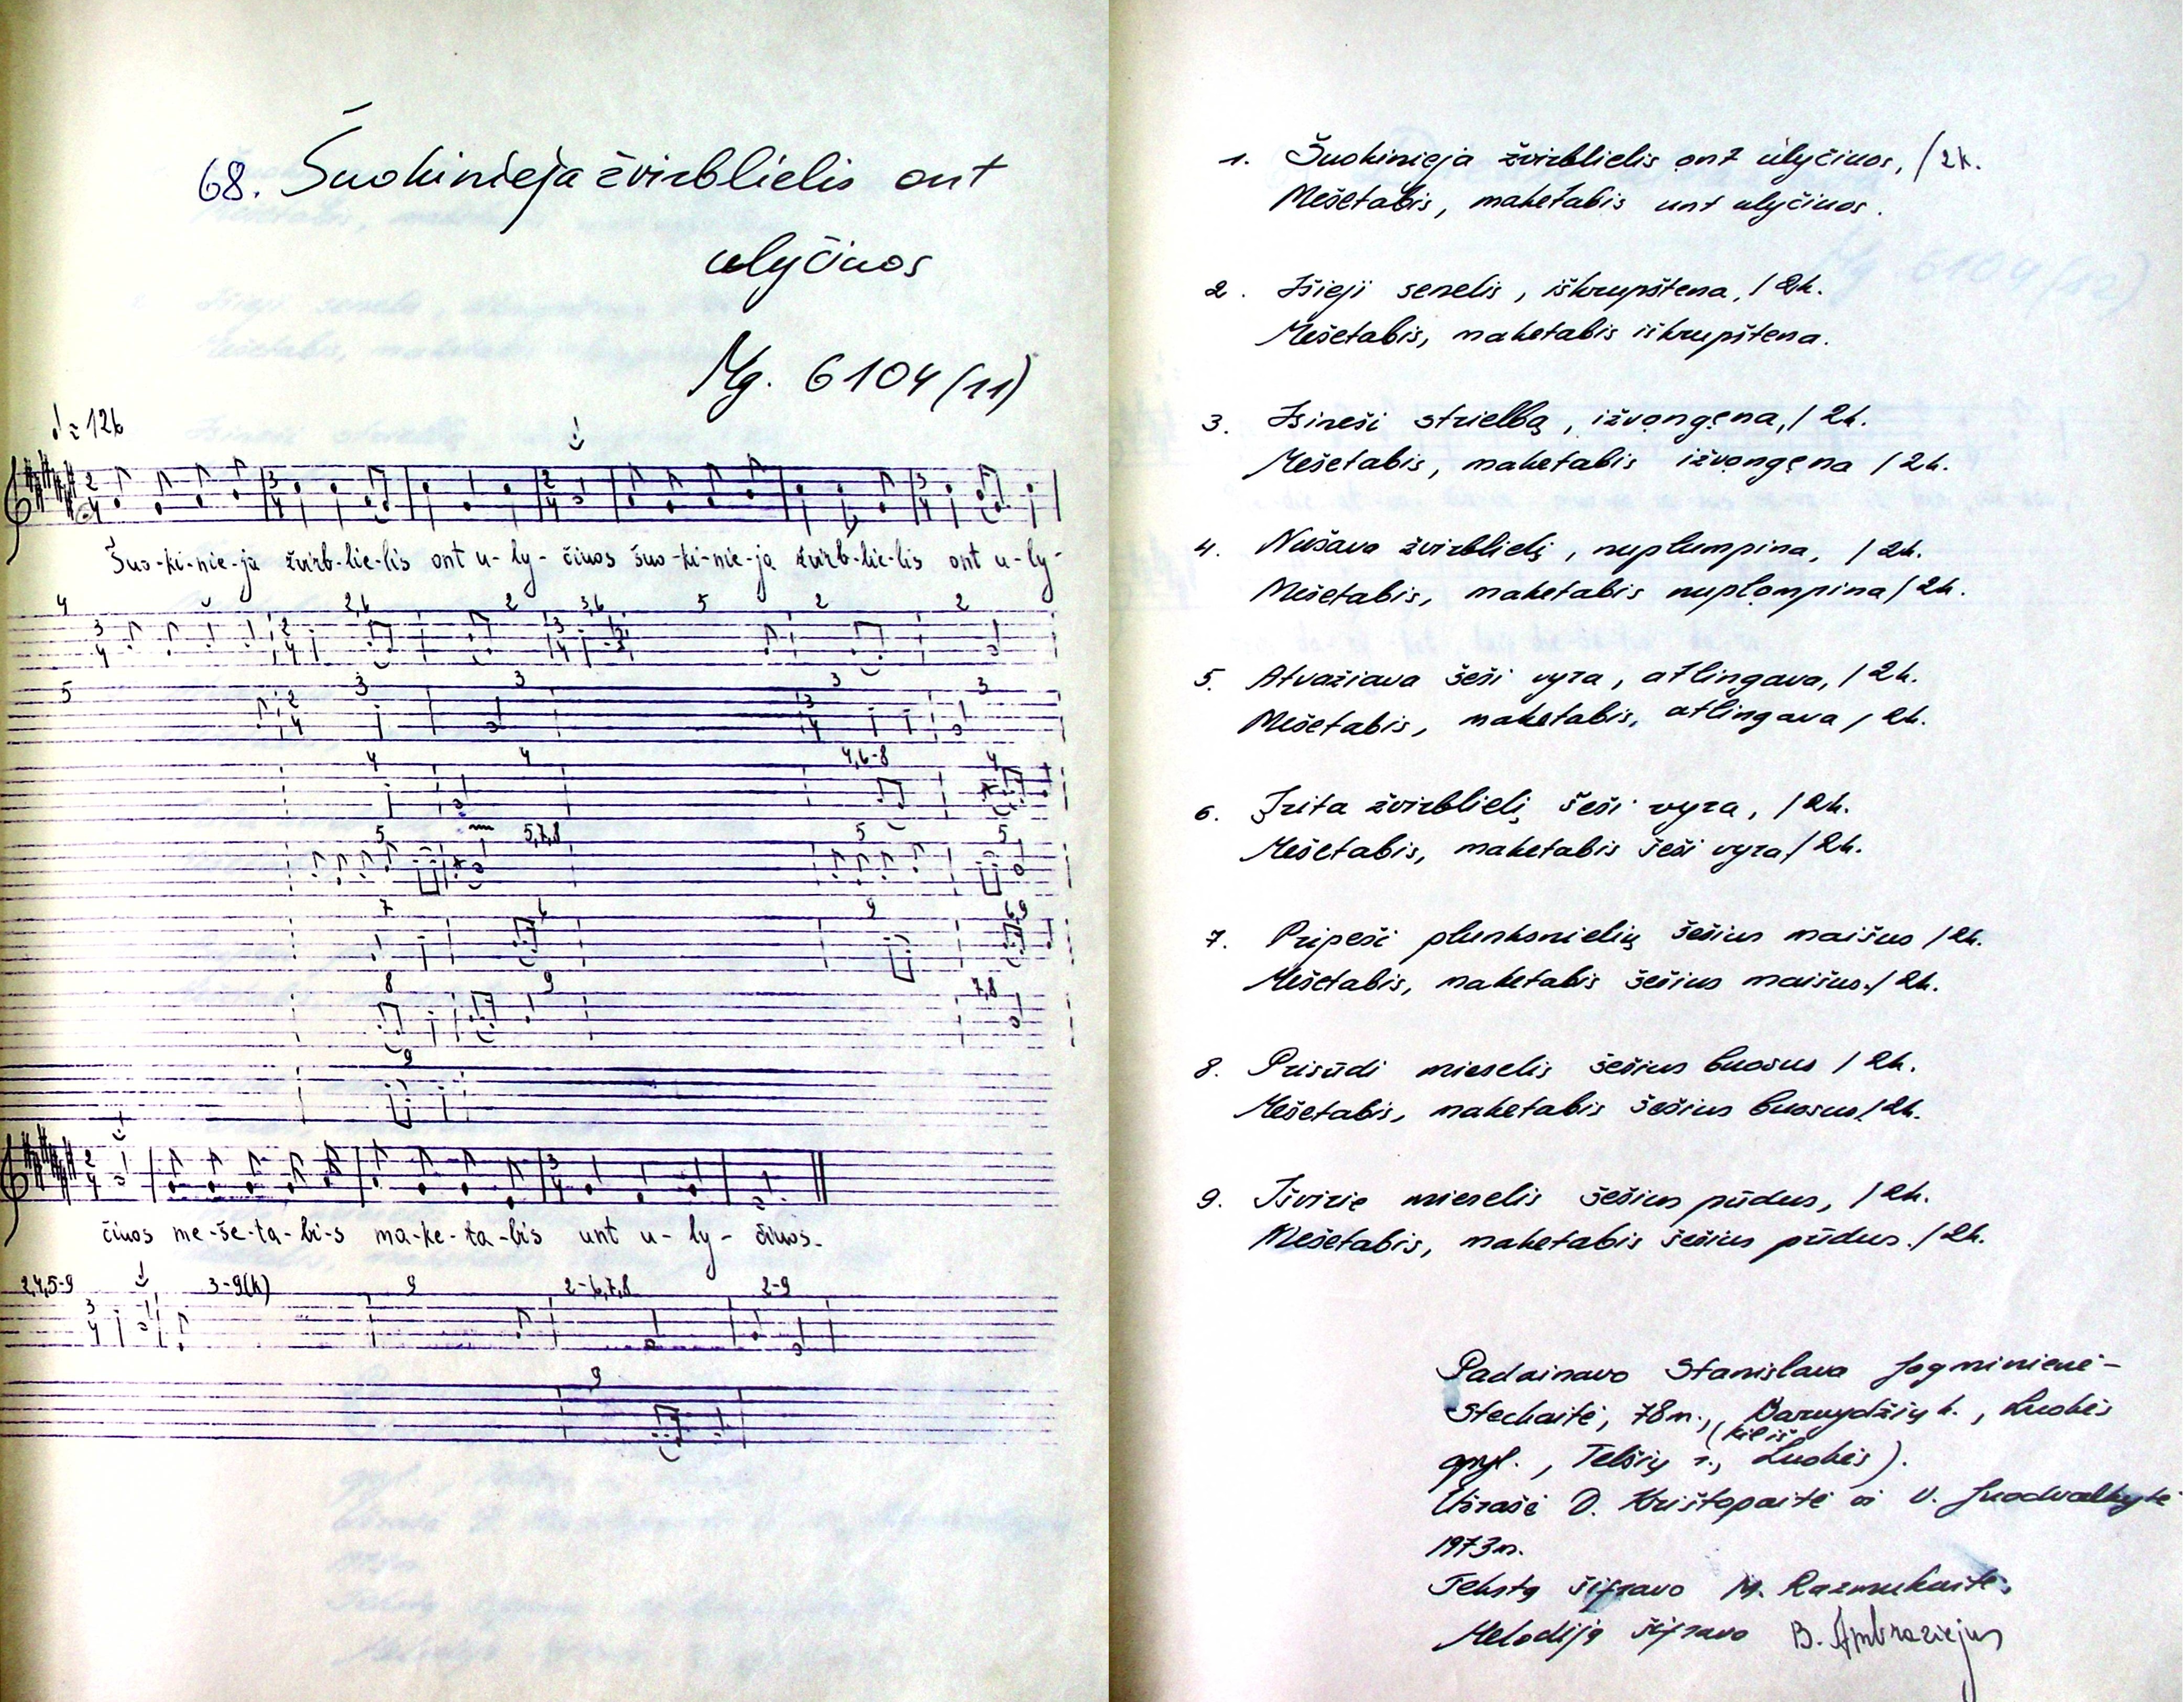 68. Šuokinieja žvirblielis ont
ulyčiuos
Mg. 6104 (11)
♩ = 126
Šuo-ki-nie-ja žvirb-lie-lis ont u-ly-čiuos šuo-ki-nie-ja žvirb-lie-lis ont u-ly-
4 2,6 2 3,6 5 2 2
5 3 3 3 3
4 4 4,6-8 4
5 5,7,8 5 5
7 6 9 6,9
8 9 7,8
9
čiuos me-še-ta-bi-s ma-ke-ta-bis unt u-ly-čiuos.
2,4,5-9 3-9(k) 9 2-6,7,8 2-9
9
1. Šuokinieja žvirblielis ont ulyčiuos, / 2k.
Mešetabis, maketabis unt ulyčiuos.
2. Išieji senelis, iškrupštena, / 2k.
Mešetabis, maketabis iškrupštena.
3. Isineši strielbą, ižvongęna, / 2k.
Mešetabis, maketabis ižvongęna / 2k.
4. Nušava žvirblielį, nuplumpina, / 2k.
Mešetabis, maketabis nuplompina / 2k.
5. Atvažiava šeši vyra, atlingava, / 2k.
Mešetabis, maketabis, atlingava / 2k.
6. Įrita žvirblielį šeši vyra, / 2k.
Mešetabis, maketabis šeši vyra / 2k.
7. Pripeši plunksnielių šešius maišus / 2k.
Mešetabis, maketabis šešius maišus. / 2k.
8. Prisūdi mieselis šešius buosus / 2k.
Mešetabis, maketabis šešius buosus / 2k.
9. Išvirie mieselis šešius pūdus, / 2k.
Mešetabis, maketabis šešius pūdus. / 2k.
Padainavo Stanislava Jogminienė-
Stechaitė, 78 m., Barvydžių k., Luokės
apyl., Telšių r., (kil. iš Luokės).
Užrašė D. Krištopaitė ir V. Juodvalkytė
1973 m.
Tekstą šifravo M. Razmukaitė,
Melodiją šifravo B. Ambraziejus